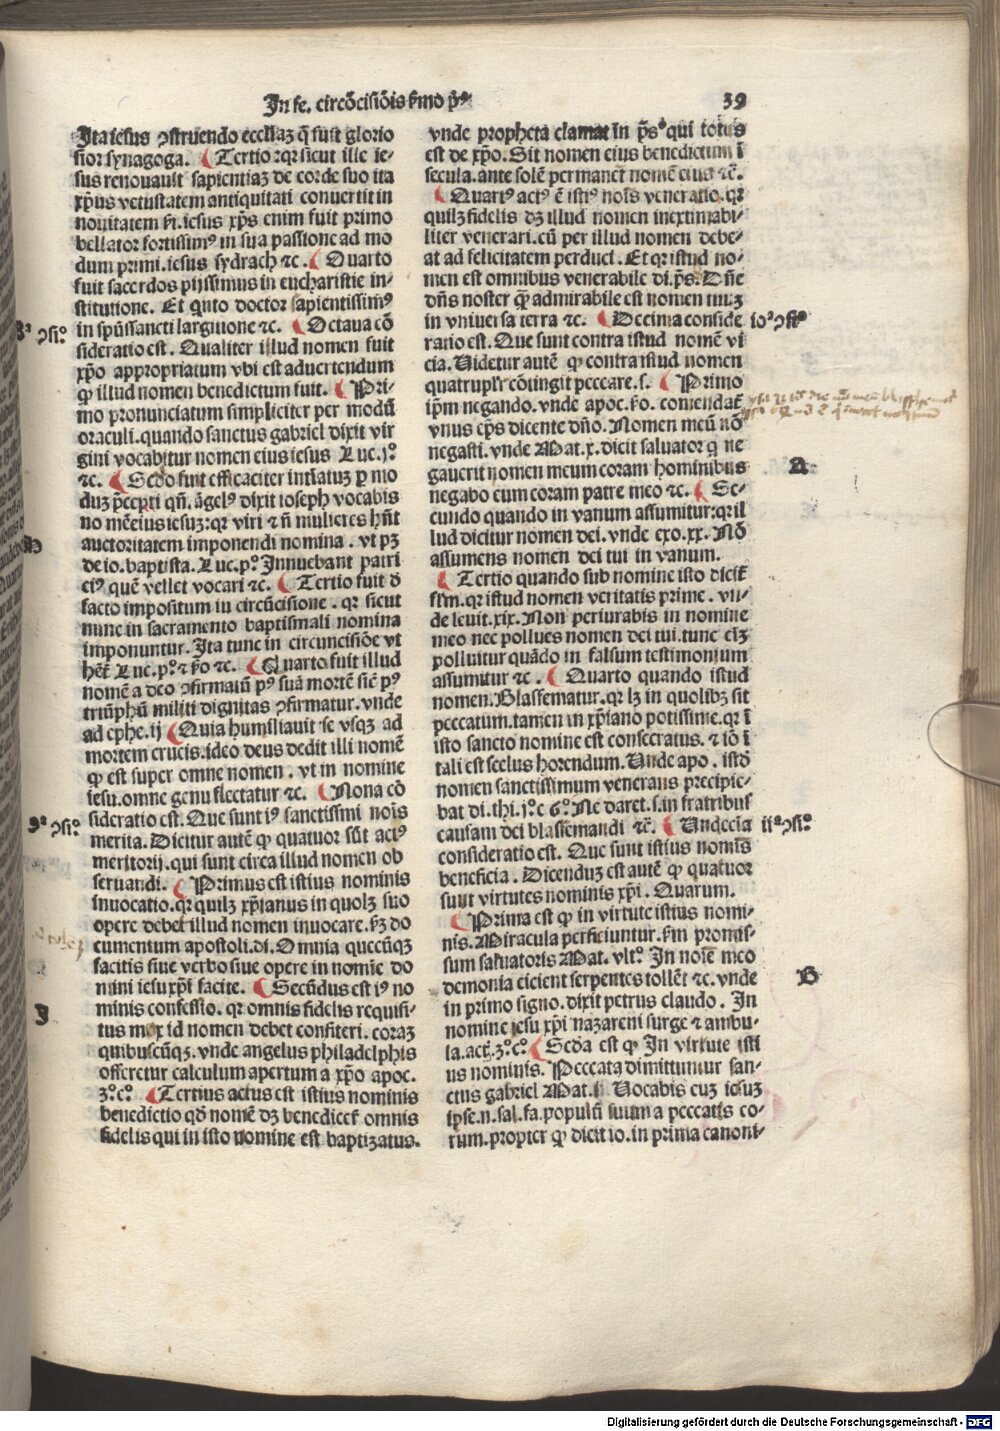 In fe. circūcisiōis ẜmo pͫꝰ
39
Ita iesus ꝯstruendo eccĺiaꝫ q̄ fuit glorio
sior synagoga. Tertio:qꝛ sicut ille ie-
sus renouauit sapientiaꝫ de corde suo ita
xp̄us vetustatem antiquitati conuertit in
nouitatem ẜi. iesus xp̄s enim fuit primo
bellator fortissimꝰ in sua passione ad mo
dum primi.iesus sydrach ⁊c. Quarto
fuit sacerdos pijssimus in eucharistie in-
stitutione. Et qͥnto doctor sapientissimꝰ
in spūssancti largitione ⁊c. Octaua cō
8ª ꝯſi.º
sideratio est. Qualiter illud nomen fuit
xp̄o appropriatum vbi est aduertendum
ꝙ illud nomen benedictum fuit. Pri-
mo pronunciatum simpliciter per modū
oraculi.quando sanctus gabriel dixit vir
gini vocabitur nomen eius iesus Luc.jº
⁊c. Scd̄o fuit efficaciter intīatuꝫ ꝑ mo
duꝫ p̄cepti qn̄. āgelꝰ dixit ioseph vocabis
no mēeius iesuꝫ:qꝛ viri ⁊ n̄ mulieres hn̄t
auctoritatem imponendi nomina. vt pꝫ
de io.baptista. Luc.pº. Innuebant patri
eiꝰ quē vellet vocari ⁊c. Tertio fuit ō
facto impositum in circūcisione. qꝛ sicut
nunc in sacramento baptismali nomina
imponuntur. Ita tunc in circuncisiōe vt
hēt̄ Luc.pº.⁊ ẜo ⁊c. Quarto fuit illud
nomē a deo ꝯfirmatū pꝰ suā mortē sic̄ pꝰ
triūphū militi dignitas ꝯfirmatur.vnde
ad ephe.ij Quia humiliauit se vsqꝫ ad
mortem crucis.ideo deus dedit illi nomē
ꝙ est super omne nomen. vt in nomine
iesu.omne genu flectatur ⁊c. Nona cō
9ª ꝯſi.º
sideratio est. Que sunt iꝰ sanctissmi noīs
merita. Dicitur autē ꝙ quatuor sūt actꝰ
meritorij.qui sunt circa illud nomen ob
seruandi. Primus est istius nominis
inuocatio.qꝛ quilꝫ xp̄ianus in quolꝫ suo
opere debet illud nomen inuocare.ẜꝫ do
cumentum apostoli.di. Omnia quecūqꝫ
facitis siue verbo siue opere in nomīe do
mini iesu xp̄i facite. Secūdus est iꝰ no
minis confessio. qꝛ omnis fidelis requisi-
J
tus mox id nomen debet confiteri. coraꝫ
quibuscūqꝫ. vnde angelus philadelphis
offeretur calculum apertum a xp̄o apoc.
3º.cº. Tertius actus est istius nominis
benedictio qd̄ nomē dꝫ benedicet̄ omnis
fidelis qui in isto nomine est baptizatus.
vnde propheta clamat in p̄s. qui totus
est de xp̄o. Sit nomen eius benedictum ī
secula.ante solē permanet nomē eius ⁊c̄.
Quartꝰ actꝰ ē istiꝰ noīs veneratio.qꝛ
quilꝫ fidelis dꝫ illud nomen inextimabi-
liter venerari.cū per illud nomen debe-
at ad felicitatem perduci. Et qꝛ istud no-
men est omnibus venerabile di.p̄s. Dn̄e
dn̄s noster q̄ꝫ admirabile est nomen tuuꝫ
in vniuersa terra ⁊c. Decima conside
ioª ꝯſiº
ratio est. Que sunt contra istud nomē vi
cia. Uidetur autē ꝙ contra istud nomen
quatruplr̄ cōtingit peccare.s. Primo
ip̄m negando. vnde apoc. ẜo. comendat̄
vnus ep̄s dicente dn̄o. Nomen meū nō
negasti. vnde Mat.x. dicit saluator q ne
gauerit nomen meum coram hominibus
A
negabo eum coram patre meo ⁊c. Se-
cundo quando in vanum assumitur:qꝛ il
lud dicitur nomen dei. vnde exo.xx. Nō
assumens nomen dei tui in vanum.
Tertio quando sub nomine isto dicit̄
fĺm. qꝛ istud nomen veritatis prime. vn-
de leuit.xix. Non periurabis in nomine
meo nec pollues nomen dei tui.tunc em̄
polluitur quādo in falsum testimonium
assumitur ⁊c. Quarto quando istud
nomen. Blasfematur. qꝛ lꝫ in quolibꝫ sit
peccatum.tamen in xp̄iano potissime.qꝛ ī
isto sancto nomine est consecratus. ⁊ iō ī
tali est scelus horendum. Unde apo. istō
nomen sanctissimum venerans precipie-
bat di.thi.jº.c 6º. Ne daret.s.in fratribus
causam dei blasfemandi ⁊c̄. Undecīa
iiª ꝯſiº
consideratio est. Que sunt istius nomīs
beneficia. Dicenduꝫ est autē ꝙ quatuor
sunt virtutes nominis xp̄i. Quarum.
Prima est ꝙ in virtute istius nomi-
nis. Miracula perficiuntur. ẜm promis-
sum saluatoris Mat. vltº. In noīe meo
demonia eicient serpentes tollēt ⁊c. vnde
B
in primo signo. dixit petrus claudo. In
nomine iesu xp̄i nazareni surge ⁊ ambu-
la.act̄.3º.cº. Scd̄a est ꝙ In virtute isti
us nominis. Peccata dimittuntur san-
ctus gabriel Mat.i. Uocabis euꝫ iesuꝫ
ipse.n.sal.fa.populū suum a peccatis eo-
rum.propter ꝙ dicit io.in prima canoni-
Digitalisierung gefördert durch die Deutsche Forschungsgemeinschaft - DFG